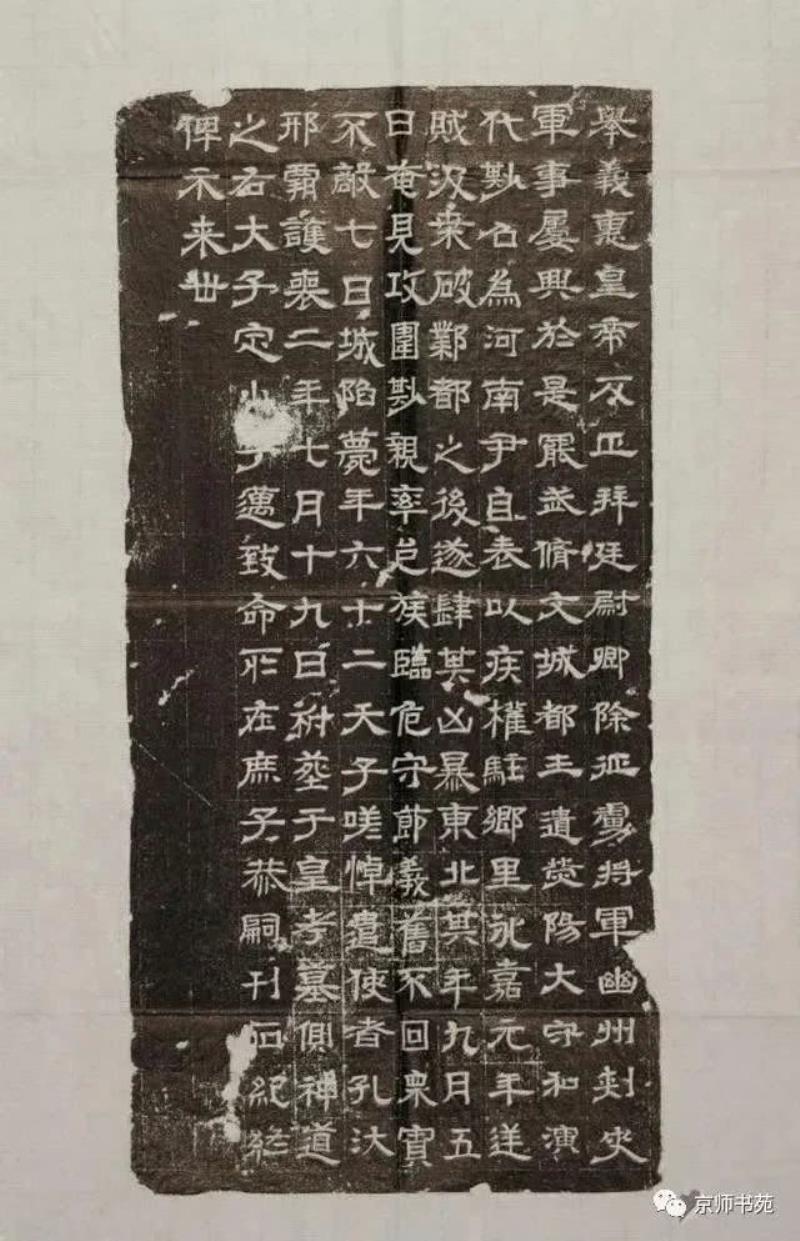 舉義惠皇帝反正拜廷尉卿除征虜將軍幽州刺史
軍事屢興於是罷武脩文城都王遣熒陽大守和演
代尠名為河南尹自表以疾權駐鄉里永嘉元年逆
賊汲桑破鄴都之後遂肆其凶暴東北其年九月五
日奄見攻圍尠親率邑族臨危守節義舊不回眾寡
不敵七日城陷薨年六十二天子嗟悼遣使者孔汏
邢霸護喪二年七月十九日祔塟于皇考墓側神道
之右大子定小子邁致命所在庶子恭嗣刊石紀終
俾示来世
京师书苑